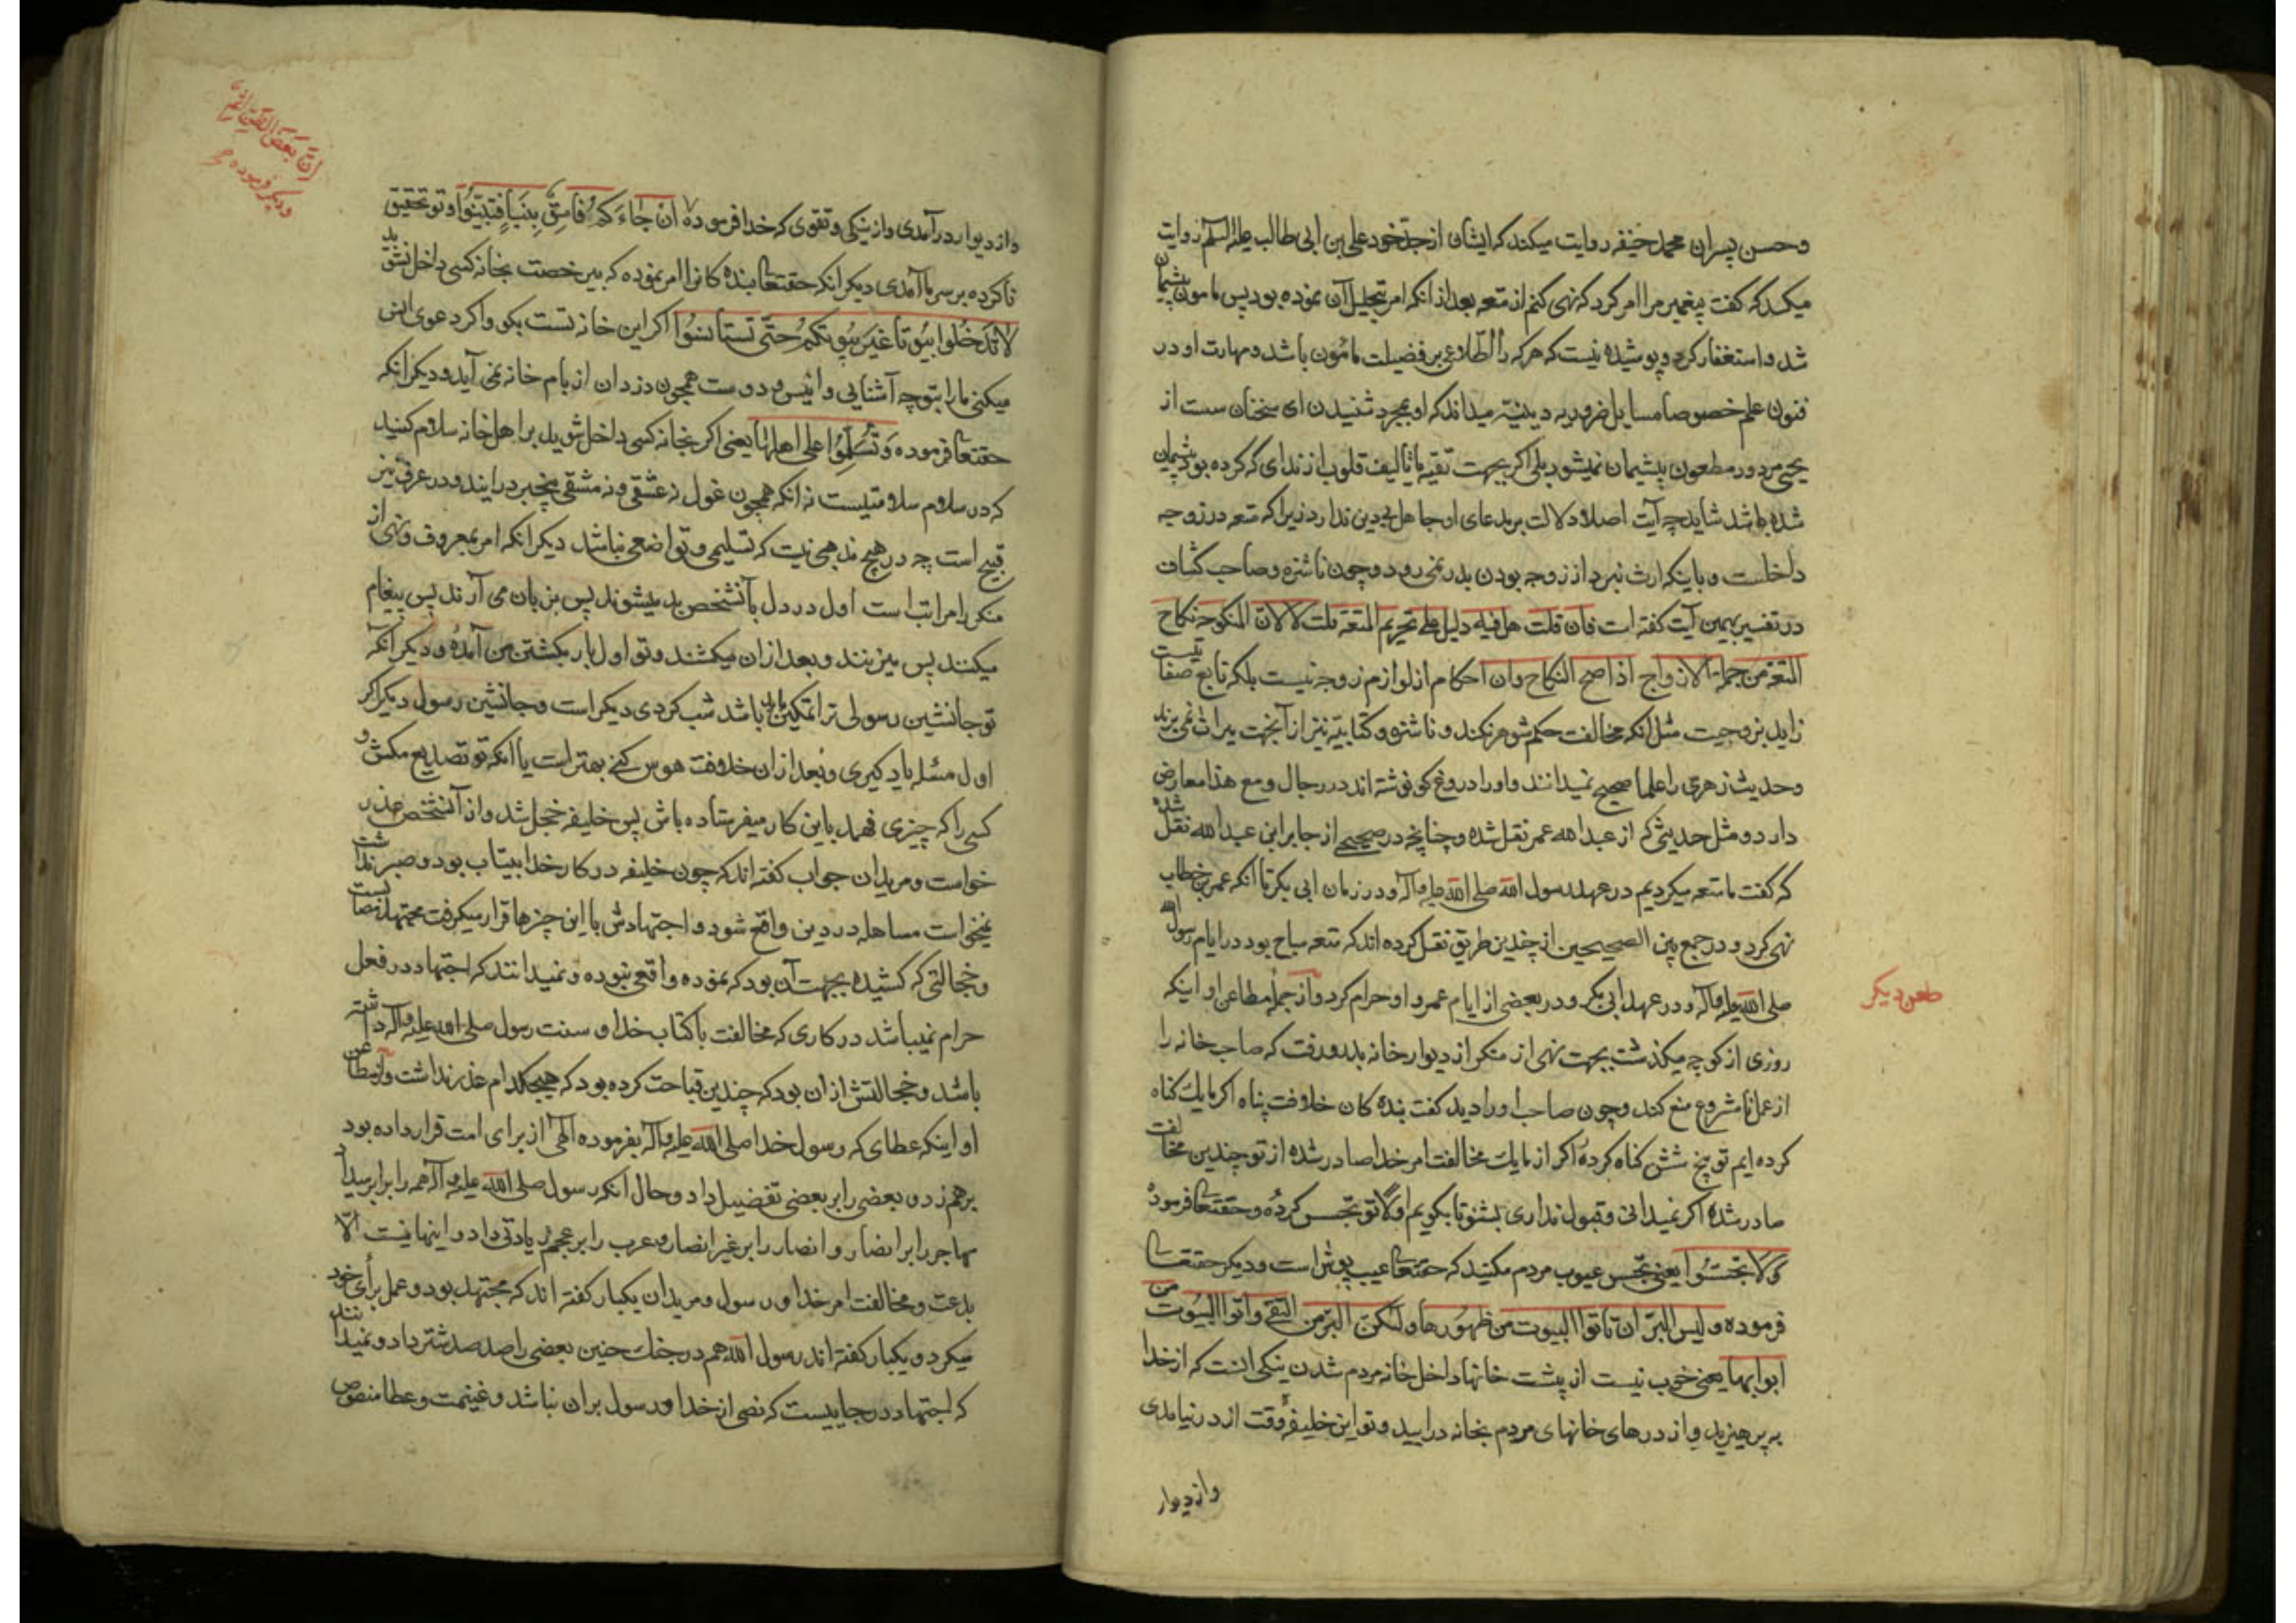 وحسن پسران محمد حنیفه روایت میکند که ایشان از جد خود علی بن ابی طالب علیه السلم روایت
میکند که گفت پیغمبر مرا امر کرد که نهی کنم از متعه بعد از انکه امر بتحلیل آن نموده بود پس مامون پشیمان
شد و استغفار کرد و پوشیده نیست که هر که را اطلاع بر فضیلت مامون باشد و مهارت او در
فنون علم خصوصا مسایل ضروریه دینیه میداند که او بمجرد شنیدن ای سخنان سست از
یحیی مردود مطعون پشیمان نمیشود بلی اکر بجهت تقیه یا تالیف قلوب از ندای که کرده بود پشیمان
شده باشد شاید چه آیت اصلا دلالت بر مدعای او جاهل بیدین ندارد زیرا که متعه در زوجه
داخلست و باینکه ارث نبرد از زوجه بودن بدر نمی رود و چون ناشزه و صاحب کشاف
در تفسیر همین آیت کفته است فان قلت هل فیه دلیل علی تحریم المتعه قلت لا لان المنکوحه نکاح
المتعه من جمله الازواج اذا صح النکاح وان احکام از لوازم زوجه نیست بلکه تابع صفا تیست
زاید بزوجیت مثل انکه مخالفت حکم شوهر نکند و ناشزه و کتابیه نیز از آنجهت میراث نمی برند
وحدیث زهری را علما صحیح نمیدانند و او را دروغ کو نوشته اند در رجال و مع هذا معارض
دارد و مثل حدیثی که از عبد الله عمر نقل شده و چنانچه در صحیحی از جابر ابن عبد الله نقل شده
که گفت ما متعه میکردیم در عهد رسول الله صلی الله علیه وآله و در زمان ابی بکر تا انکه عمر بن خطاب
نهی کرد و در جمع بین الصحیحین از چندین طریق نقل کرده اند که متعه مباح بود در ایام رسول الله
صلی الله علیه وآله و در عهد ابی بکر و در بعضی از ایام عمر و او حرام کرد و از جمله مطاعن او اینکه
طعن دیکر
روزی از کوچه میکذشت بجهت نهی از منکر از دیوار خانه بالا رفت که صاحب خانه را
از عمل نامشروع منع کند و چون صاحب او را دید کفت بنده کان خلافت پناه اکر ما یک کناه
کرده ایم تو پنج شش کناه کردهٔ اکر از ما یک مخالفت امر خدا صادر شده از تو چندین مخالفت
صادر شده اکر نمیدانی و قبول نداری بشنو تا بکویم اولا تو تجسس کردهٔ و حقتعا فرموده
ولا تجسسوا یعنی تجسس عیوب مردم مکنید که حقتعا عیب پوش است و دیکر حقتعا
فرموده و لیس البر ان تاتوا البیوت من ظهورها ولکن البر من اتقی واتوا البیوت من
ابوابها یعنی خوب نیست از پشت خانها داخل خانه مردم شدن نیکی انست که از خدا
به پرهیزید و از درهای خانهای مردم بخانه درایید و تو این خلیفهٔ وقت از در نیامدی
واز دیوار
ان بعض الظن اثم
ودیکر فرموده
واز دیوار درآمدی واز نیکی و تقوی که خدا فرموده ان جاءکم فاسق بنبا فتبینوا و تو تحقیق
ناکرده بر سر ما آمدی دیکر انکه حقتعا بنده کانرا امر نموده که بی رخصت بخانه کسی داخل نشوید
لا تدخلوا بیوتا غیر بیوتکم حتی تستانسوا اکر این خانه تست بکو و اکر دعوی انس
میکنی ما را بتو چه آشنایی و انیس و دوست همچون دزدان از بام خانه نمی آید و دیکر انکه
حقتعا فرموده وتسلموا علی اهلها یعنی اکر بخانه کسی داخل شوید بر اهل خانه سلام کنید
که در سلام سلامتیست نه انکه همچون غول نه عشقی و نه مشقی بیخبر درایند و در عرف نیز
قبیح است چه در هیچ مذهبی نیست که تسلیمی و تواضعی نباشد دیکر انکه امر بمعروف و نهی از
منکر را مراتب است اول در دل با آنشخص بد میشوند پس بزبان می آرند پس پیغام
میکنند پس میزنند و بعد از ان میکشند و تو اول بار بکشتن من آمدهٔ و دیکر انکه
تو جانشین رسولی ترا تمکین باید باشد شب کردی دیکر است و جانشین رسول دیکر اکر
اول مسئله یاد کیری و بعد از ان خلافت هوس کنی بهتر است یا انکه تو تصدیع مکش و
کسی را که چیزی فهمد باین کار میفرستاده باش پس خلیفه خجل شد و از آنشخص عذر
خواست و مریدان جواب کفته اند که چون خلیفه در کار خدا بیتاب بود و صبر نداشت
نمیخواست مساهله در دین واقع شود و اجتهادش با این چیزها قرار میکرفت
و خجالتی که کشیده بجهت آن بود که نموده واقعی نبوده و نمیدانند که اجتهاد در فعل
حرام نمیباشد در کاری که مخالفت با کتاب خدا و سنت رسول صلی الله علیه وآله داشته
باشد و خجالتش از ان بود که چندین قباحت کرده بود که هیچکدام عذر نداشت و از مطاعن
او اینکه عطای که رسول خدا صلی الله علیه وآله بفرموده الهی از برای امت قرار داده بود
برهم زد و بعضی را بر بعضی تفضیل داد و حال انکه رسول صلی الله علیه وآله همه را برابر میداد
مهاجر را بر انصار و انصار را بر غیر انصار و عرب را بر عجم زیادتی داد و اینها نیست الا
بدعت و مخالفت امر خدا و رسول و مریدان یکبار کفته اند که مجتهد بود و عمل برأی خود
میکرد و یکبار کفته اند رسول الله هم در جنک حنین بعضی را صد صد شتر داد و نمیدانند
که اجتهاد در جاییست که نصی از خدا و رسول بران نباشد و غنیمت و عطا منصوص